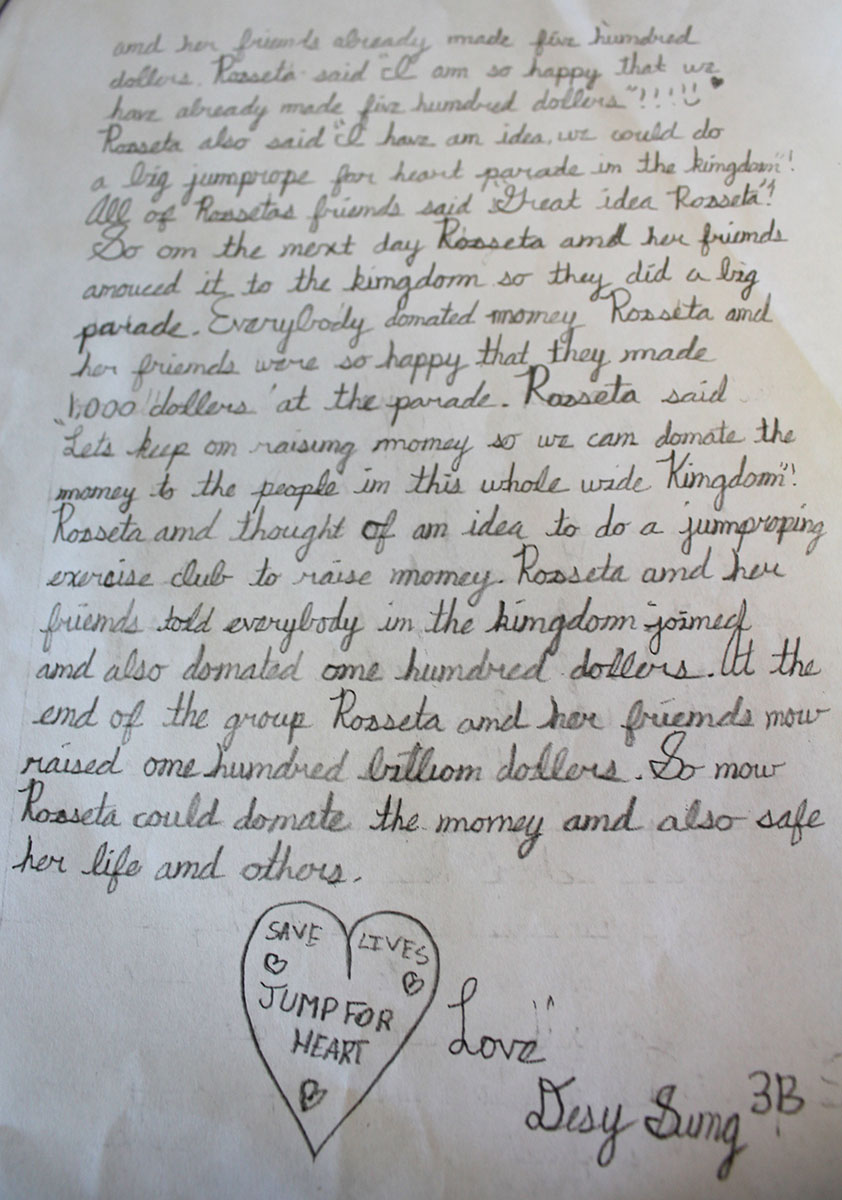 and her friends already made five hundred
dollers. Rosseta said "I am so happy that we
have already made five hundred dollers"!!!!
Rosseta also said "I have an idea, we could do
a big jumprope for heart parade in the kingdom"!
All of Rossetas friends said "Great idea Rosseta"!
So on the next day Rosseta and her friends
anouced it to the kingdom so they did a big
parade. Everybody donated money Rosseta and
her friends were so happy that they made
"1,000 dollers" at the parade. Rosseta said
"Lets keep on raising money so we can donate the
money to the people in this whole wide Kingdom"!
Rosseta and thought of an idea to do a jumproping
exercise club to raise money. Rosseta and her
friends told everybody in the kingdom joined
and also donated one hundred dollers. At the
end of the group Rosseta and her friends now
raised one hundred billion dollers. So now
Rosseta could donate the money and also safe
her life and others.
SAVE LIVES
JUMP FOR
HEART
Love"
Desy Sung 3B